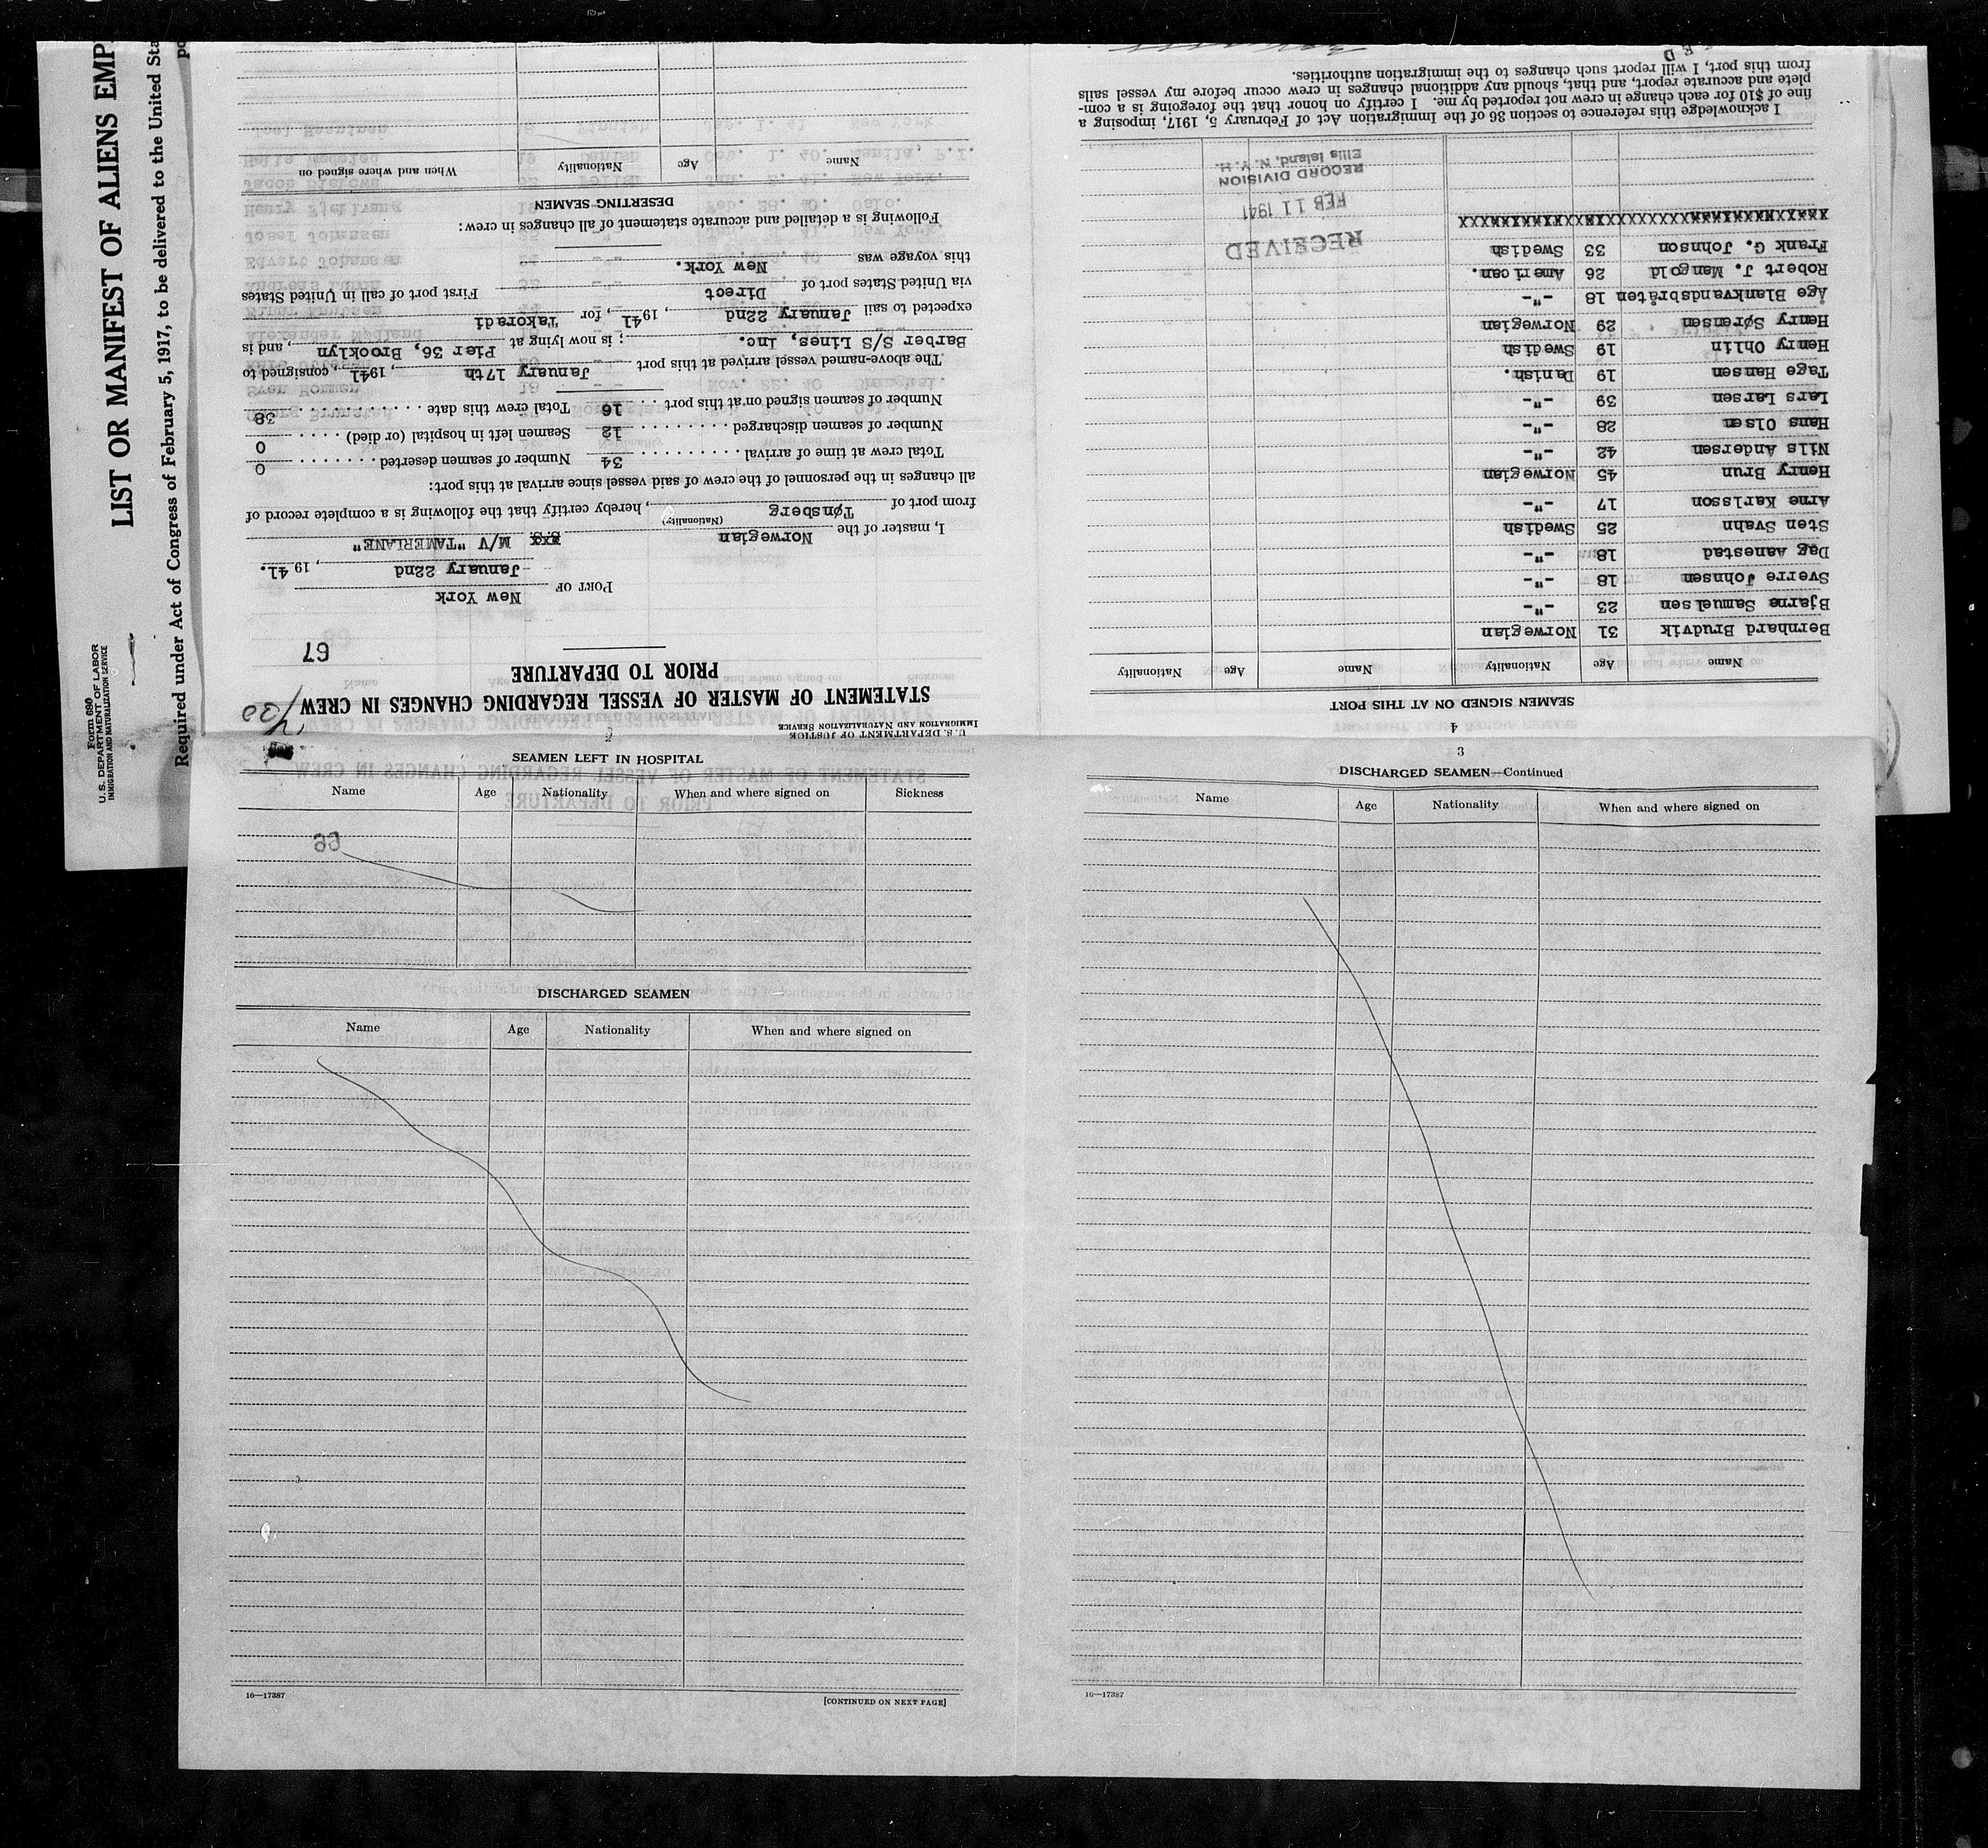 Form 680
U. S. DEPARTMENT OF LABOR
IMMIGRATION AND NATURALIZATION SERVICE
LIST OR MANIFEST OF ALIENS EMP
Required under Act of Congress of February 5, 1917, to be delivered to the United Sta
U. S. DEPARTMENT OF JUSTICE
IMMIGRATION AND NATURALIZATION SERVICE
STATEMENT OF MASTER OF VESSEL REGARDING CHANGES IN CREW
PRIOR TO DEPARTURE
67
PORT OF New York
January 22nd, 1941.
I, master of the Norwegian (Nationality) M/V "TAMERLANE"
from port of Tønsberg, hereby certify that the following is a complete record of
all changes in the personnel of the crew of said vessel since arrival at this port:
Total crew at time of arrival 34 Number of seamen deserted 0
Number of seamen discharged 12 Seamen left in hospital (or died) 0
Number of seamen signed on at this port 16 Total crew this date 38
The above-named vessel arrived at this port January 17th, 1941, consigned to
Barber S/S Lines, Inc.; is now lying at Pier 36, Brooklyn, and is
expected to sail January 22nd, 1941, for Takoradi
via United States port of Direct First port of call in United States
this voyage was New York.
Following is a detailed and accurate statement of all changes in crew:
DESERTING SEAMEN
Name Age Nationality When and where signed on
4
SEAMEN SIGNED ON AT THIS PORT
Name Age Nationality Name Age Nationality
Bernhard Brudvik 31 Norwegian
Bjarne Samuelsen 23 -"-
Sverre Johnsen 18 -"-
Dag Aanestad 18 -"-
Sten Svahn 25 Swedish
Arne Karlsson 17 -"-
Henry Brun 45 Norwegian
Nils Andersen 42 -"-
Hans Olsen 28 -"-
Lars Larsen 39 -"-
Tage Hansen 19 Danish.
Henry Ohlin 19 Swedish
Henry Sørensen 29 Norwegian
Åge Blankvandsbråten 18 -"-
Robert J. Mangold 26 American.
Frank G. Johnson 33 Swedish
RECEIVED
FEB 11 1941
RECORD DIVISION
Ellis Island, N. Y. H.
I acknowledge this reference to section 36 of the Immigration Act of February 5, 1917, imposing a
fine of $10 for each change in crew not reported by me. I certify on honor that the foregoing is a com-
plete and accurate report, and that, should any additional changes in crew occur before my vessel sails
from this port, I will report such changes to the immigration authorities.
2
SEAMEN LEFT IN HOSPITAL
Name Age Nationality When and where signed on Sickness
DISCHARGED SEAMEN
Name Age Nationality When and where signed on
16—17387
[CONTINUED ON NEXT PAGE]
3
DISCHARGED SEAMEN—Continued
Name Age Nationality When and where signed on
16—17387